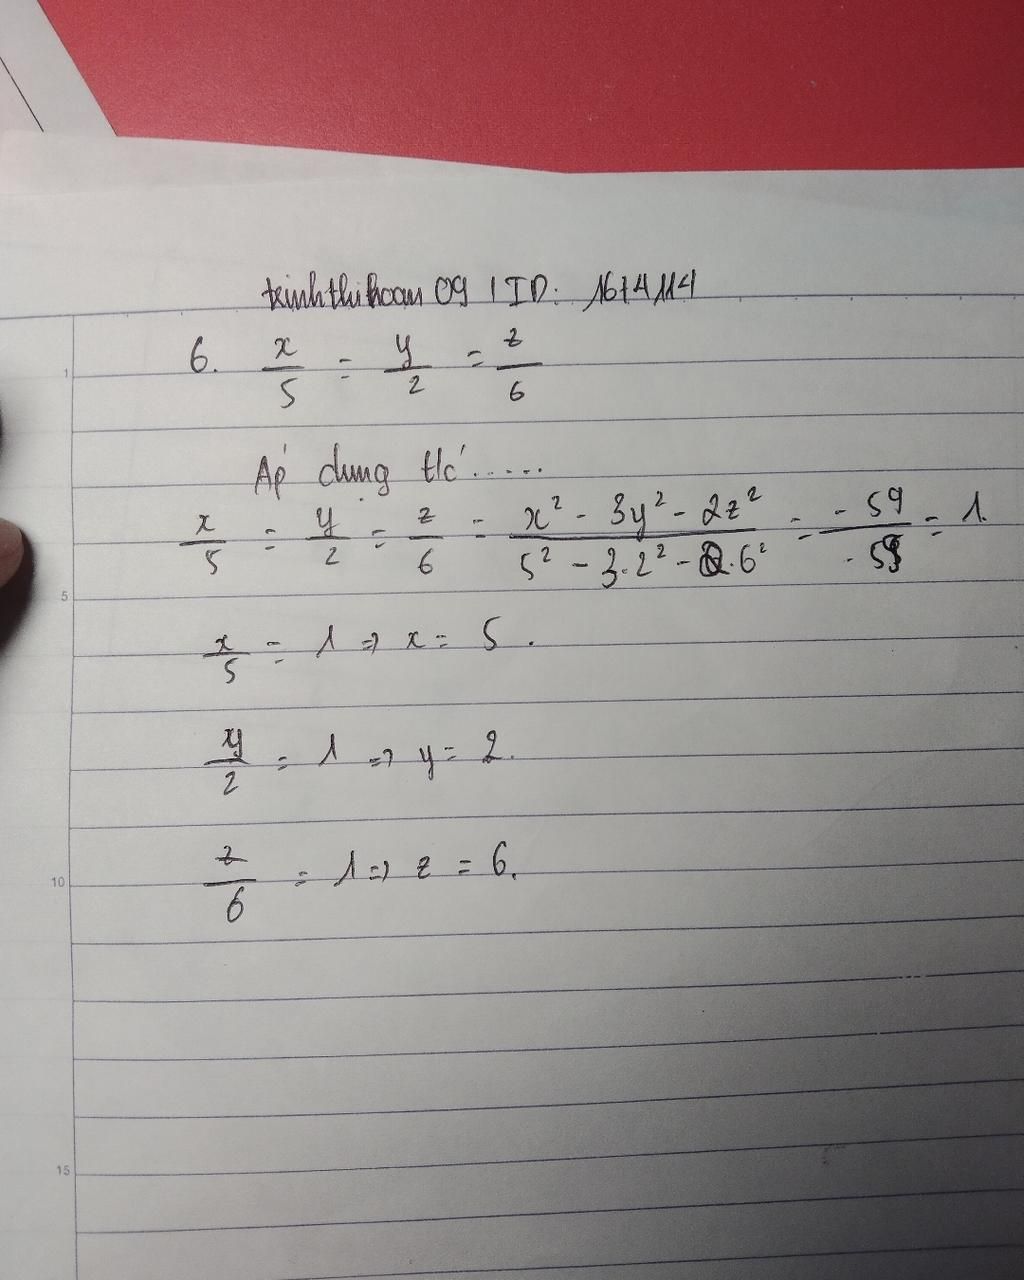 trinhthihoan 09 | ID: 1674114
6. x/5 = y/2 = z/6
Áp dung t/c.....
x/5 = y/2 = z/6 = (x² - 3y² - 2z²)/(5² - 3.2² - 2.6²) = -59/-59 = 1.
5
x/5 = 1 => x = 5.
y/2 = 1 => y = 2.
z/6 = 1 => z = 6.
10
15